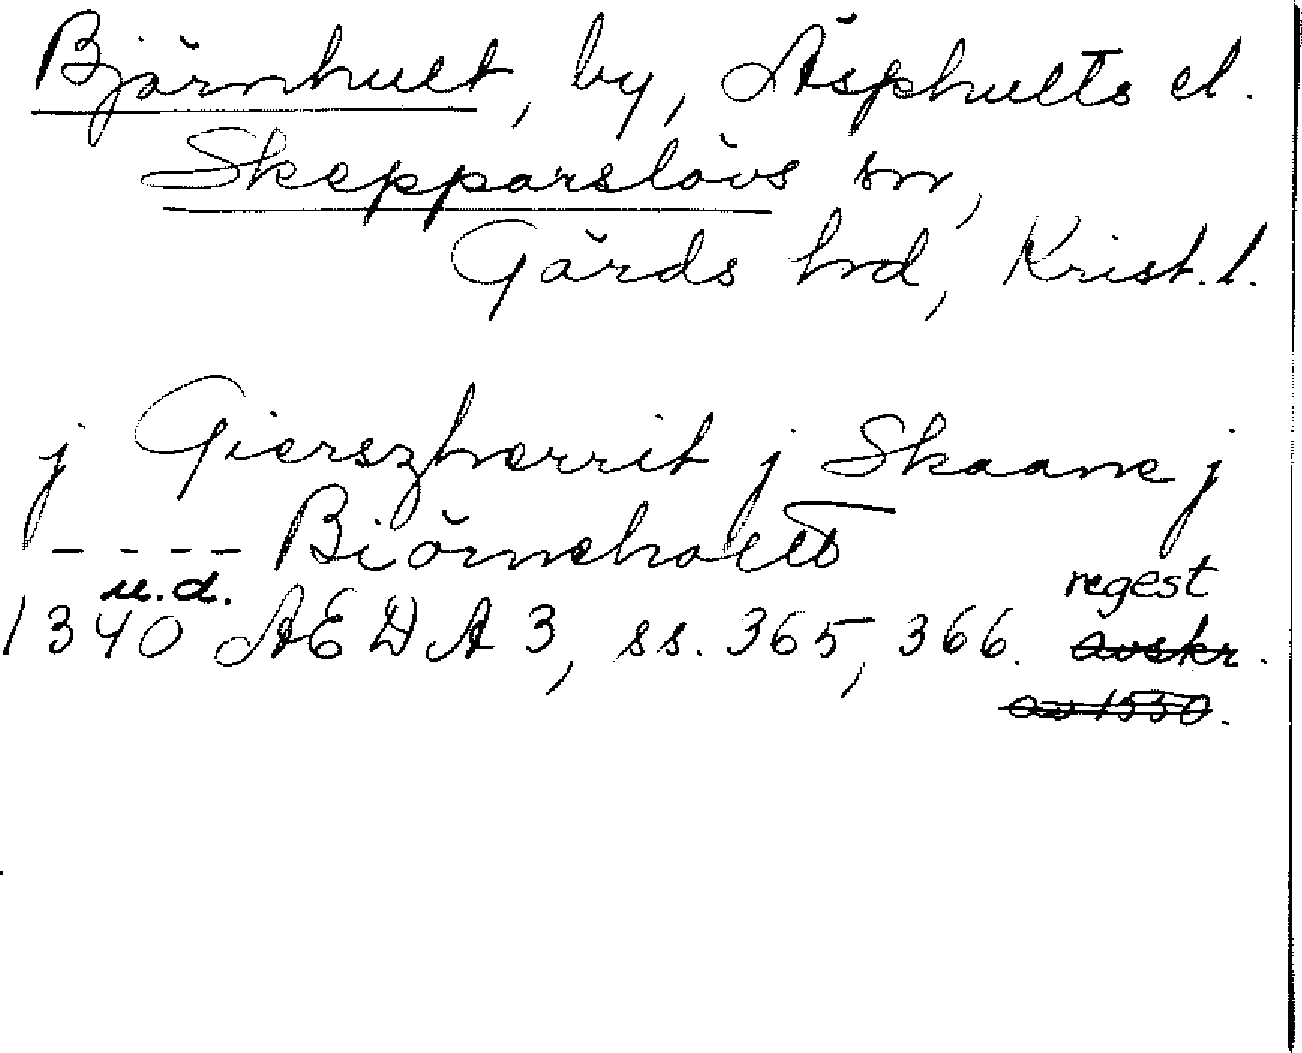 Björnhult, by, Äsphults el.
Skepparslövs sn,
Gärds hrd, Krist.l.
j Gierszherrit j Skaane j
---- Biörneholtt
u.d. regest
1340 AEDA 3, ss. 365, 366. avskr.
av 1550.